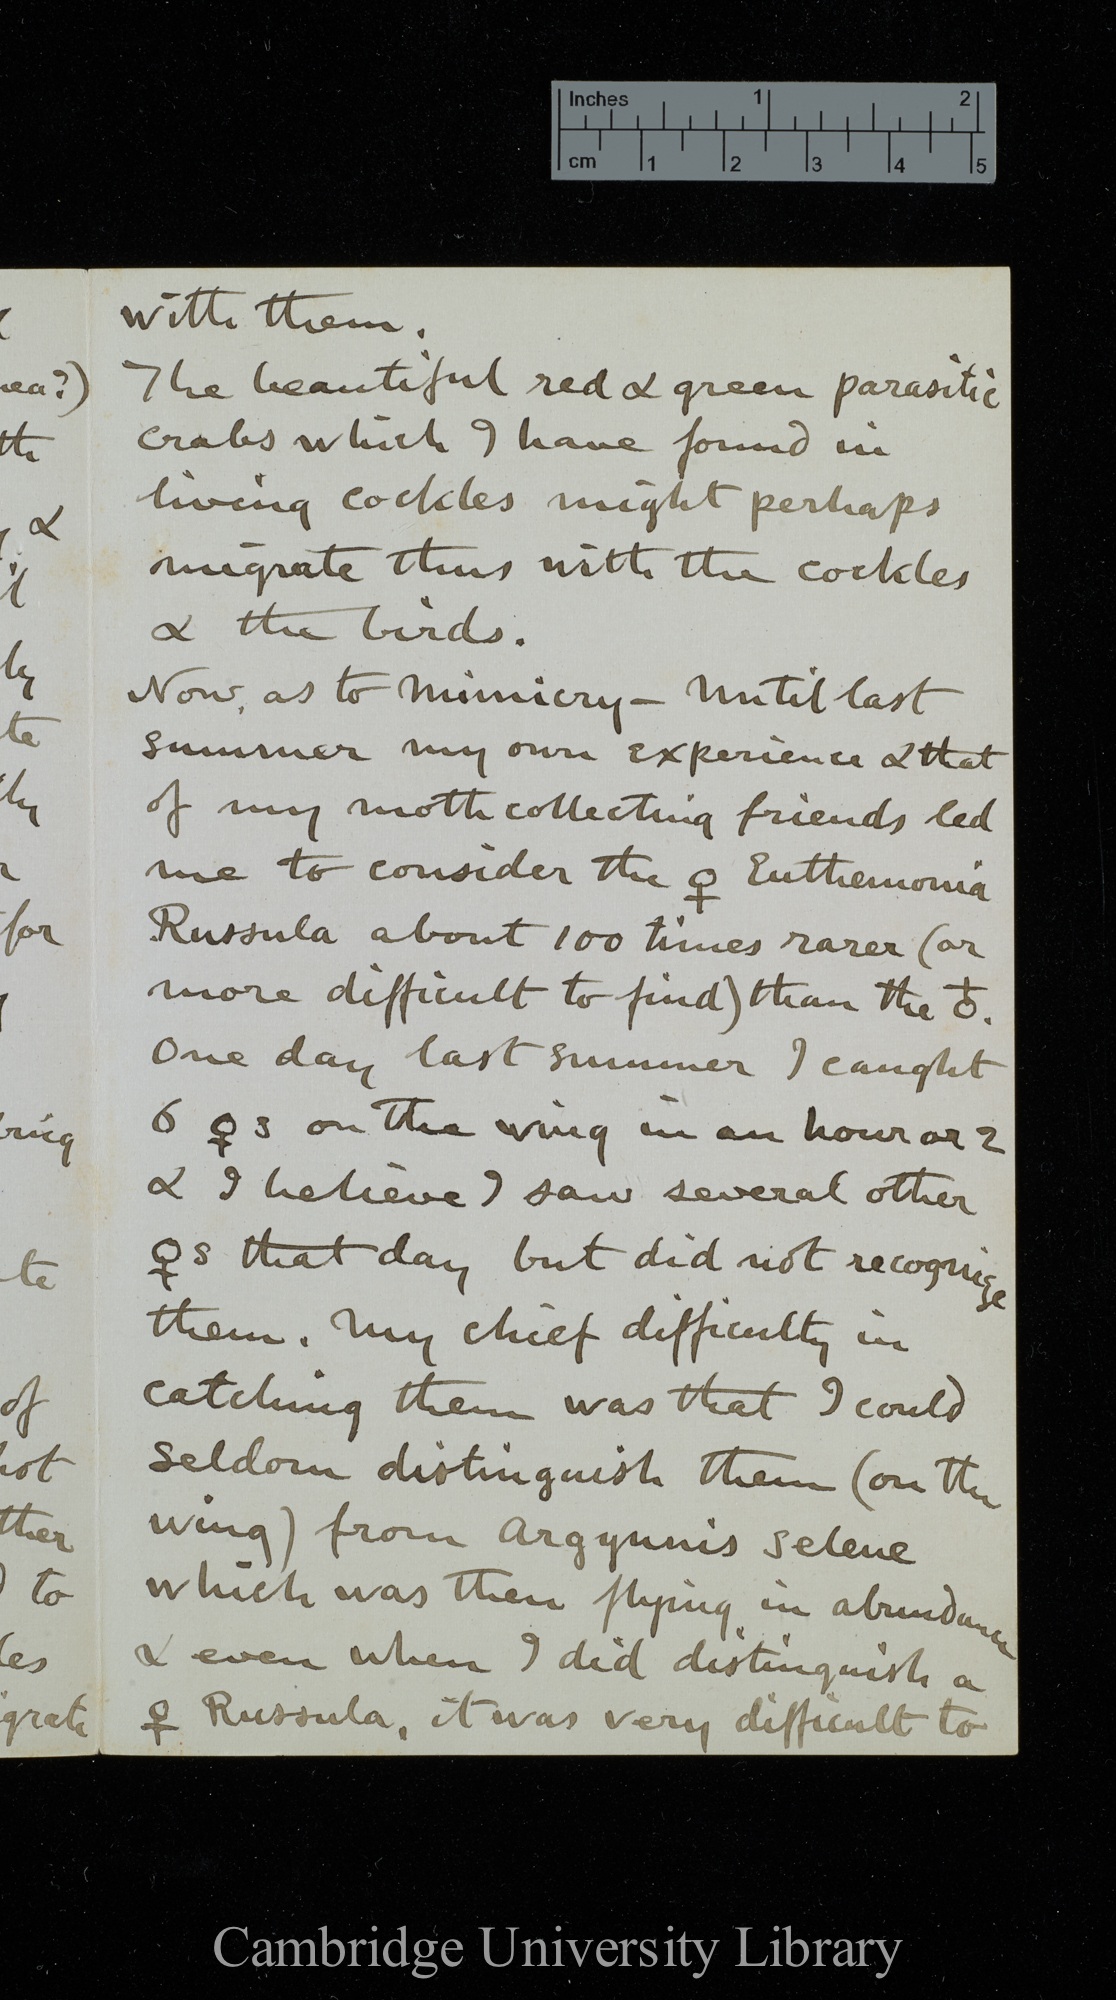 Inches 1 2
cm 1 2 3 4 5
with them.
The beautiful red & green parasitic
crabs which I have found in
living cockles might perhaps
migrate thus with the cockles
& the birds.
Now, as to Mimicry — Until last
summer my own experience & that
of my moth collecting friends led
me to consider the ♀ Euthemonia
Russula about 100 times rarer (or
more difficult to find) than the ♂.
One day last summer I caught
6 ♀s on the wing in an hour or 2
& I believe I saw several other
♀s that day but did not recognize
them. My chief difficulty in
catching them was that I could
seldom distinguish them (on the
wing) from Argynnis Selene
which was then flying in abundance
& even when I did distinguish a
♀ Russula, it was very difficult to
nea?)
th
&
ly
te
for
te
of
not
ther
to
les
igrate
Cambridge University Library